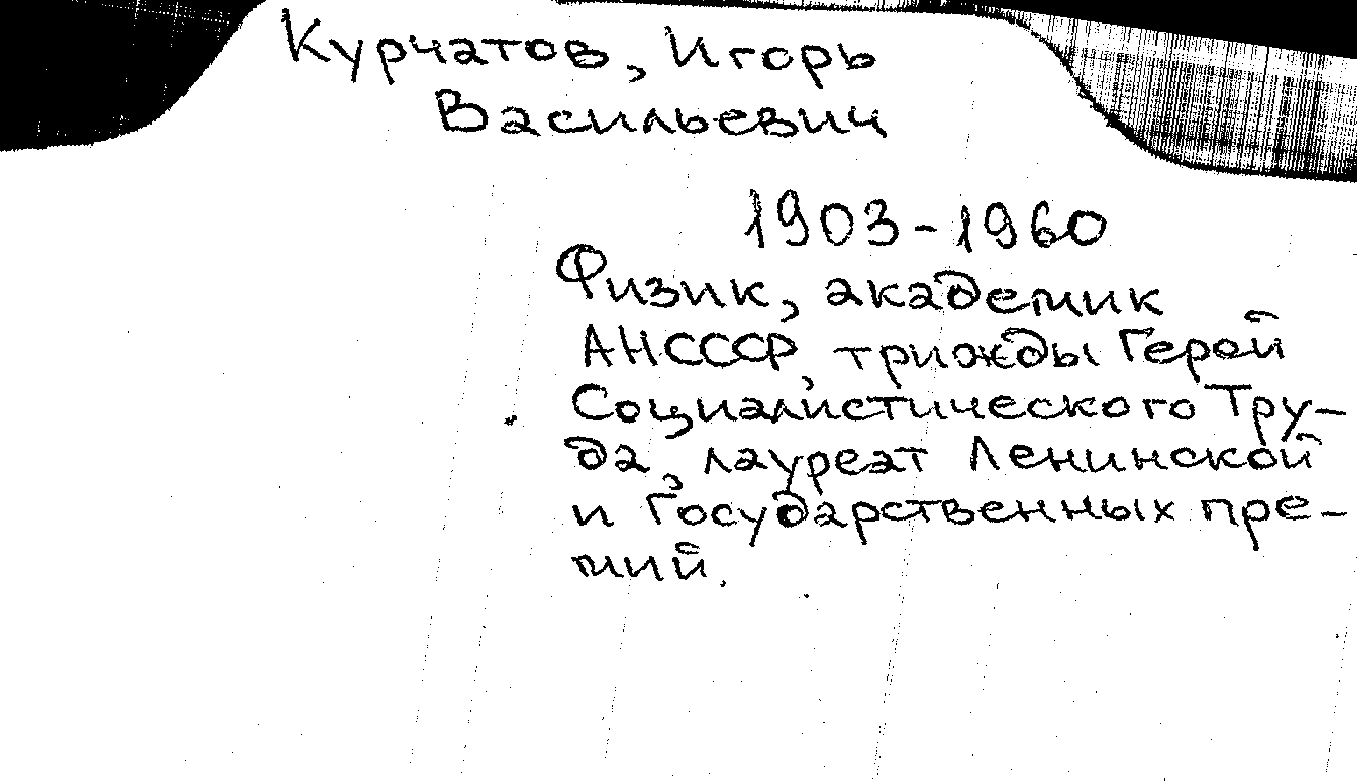 Курчатов, Игорь
Васильевич
1903-1960
Физик, академик
АНСССР, трижды Герой
Социалистического Тру-
да, лауреат Ленинской
и Государственных пре-
мий.